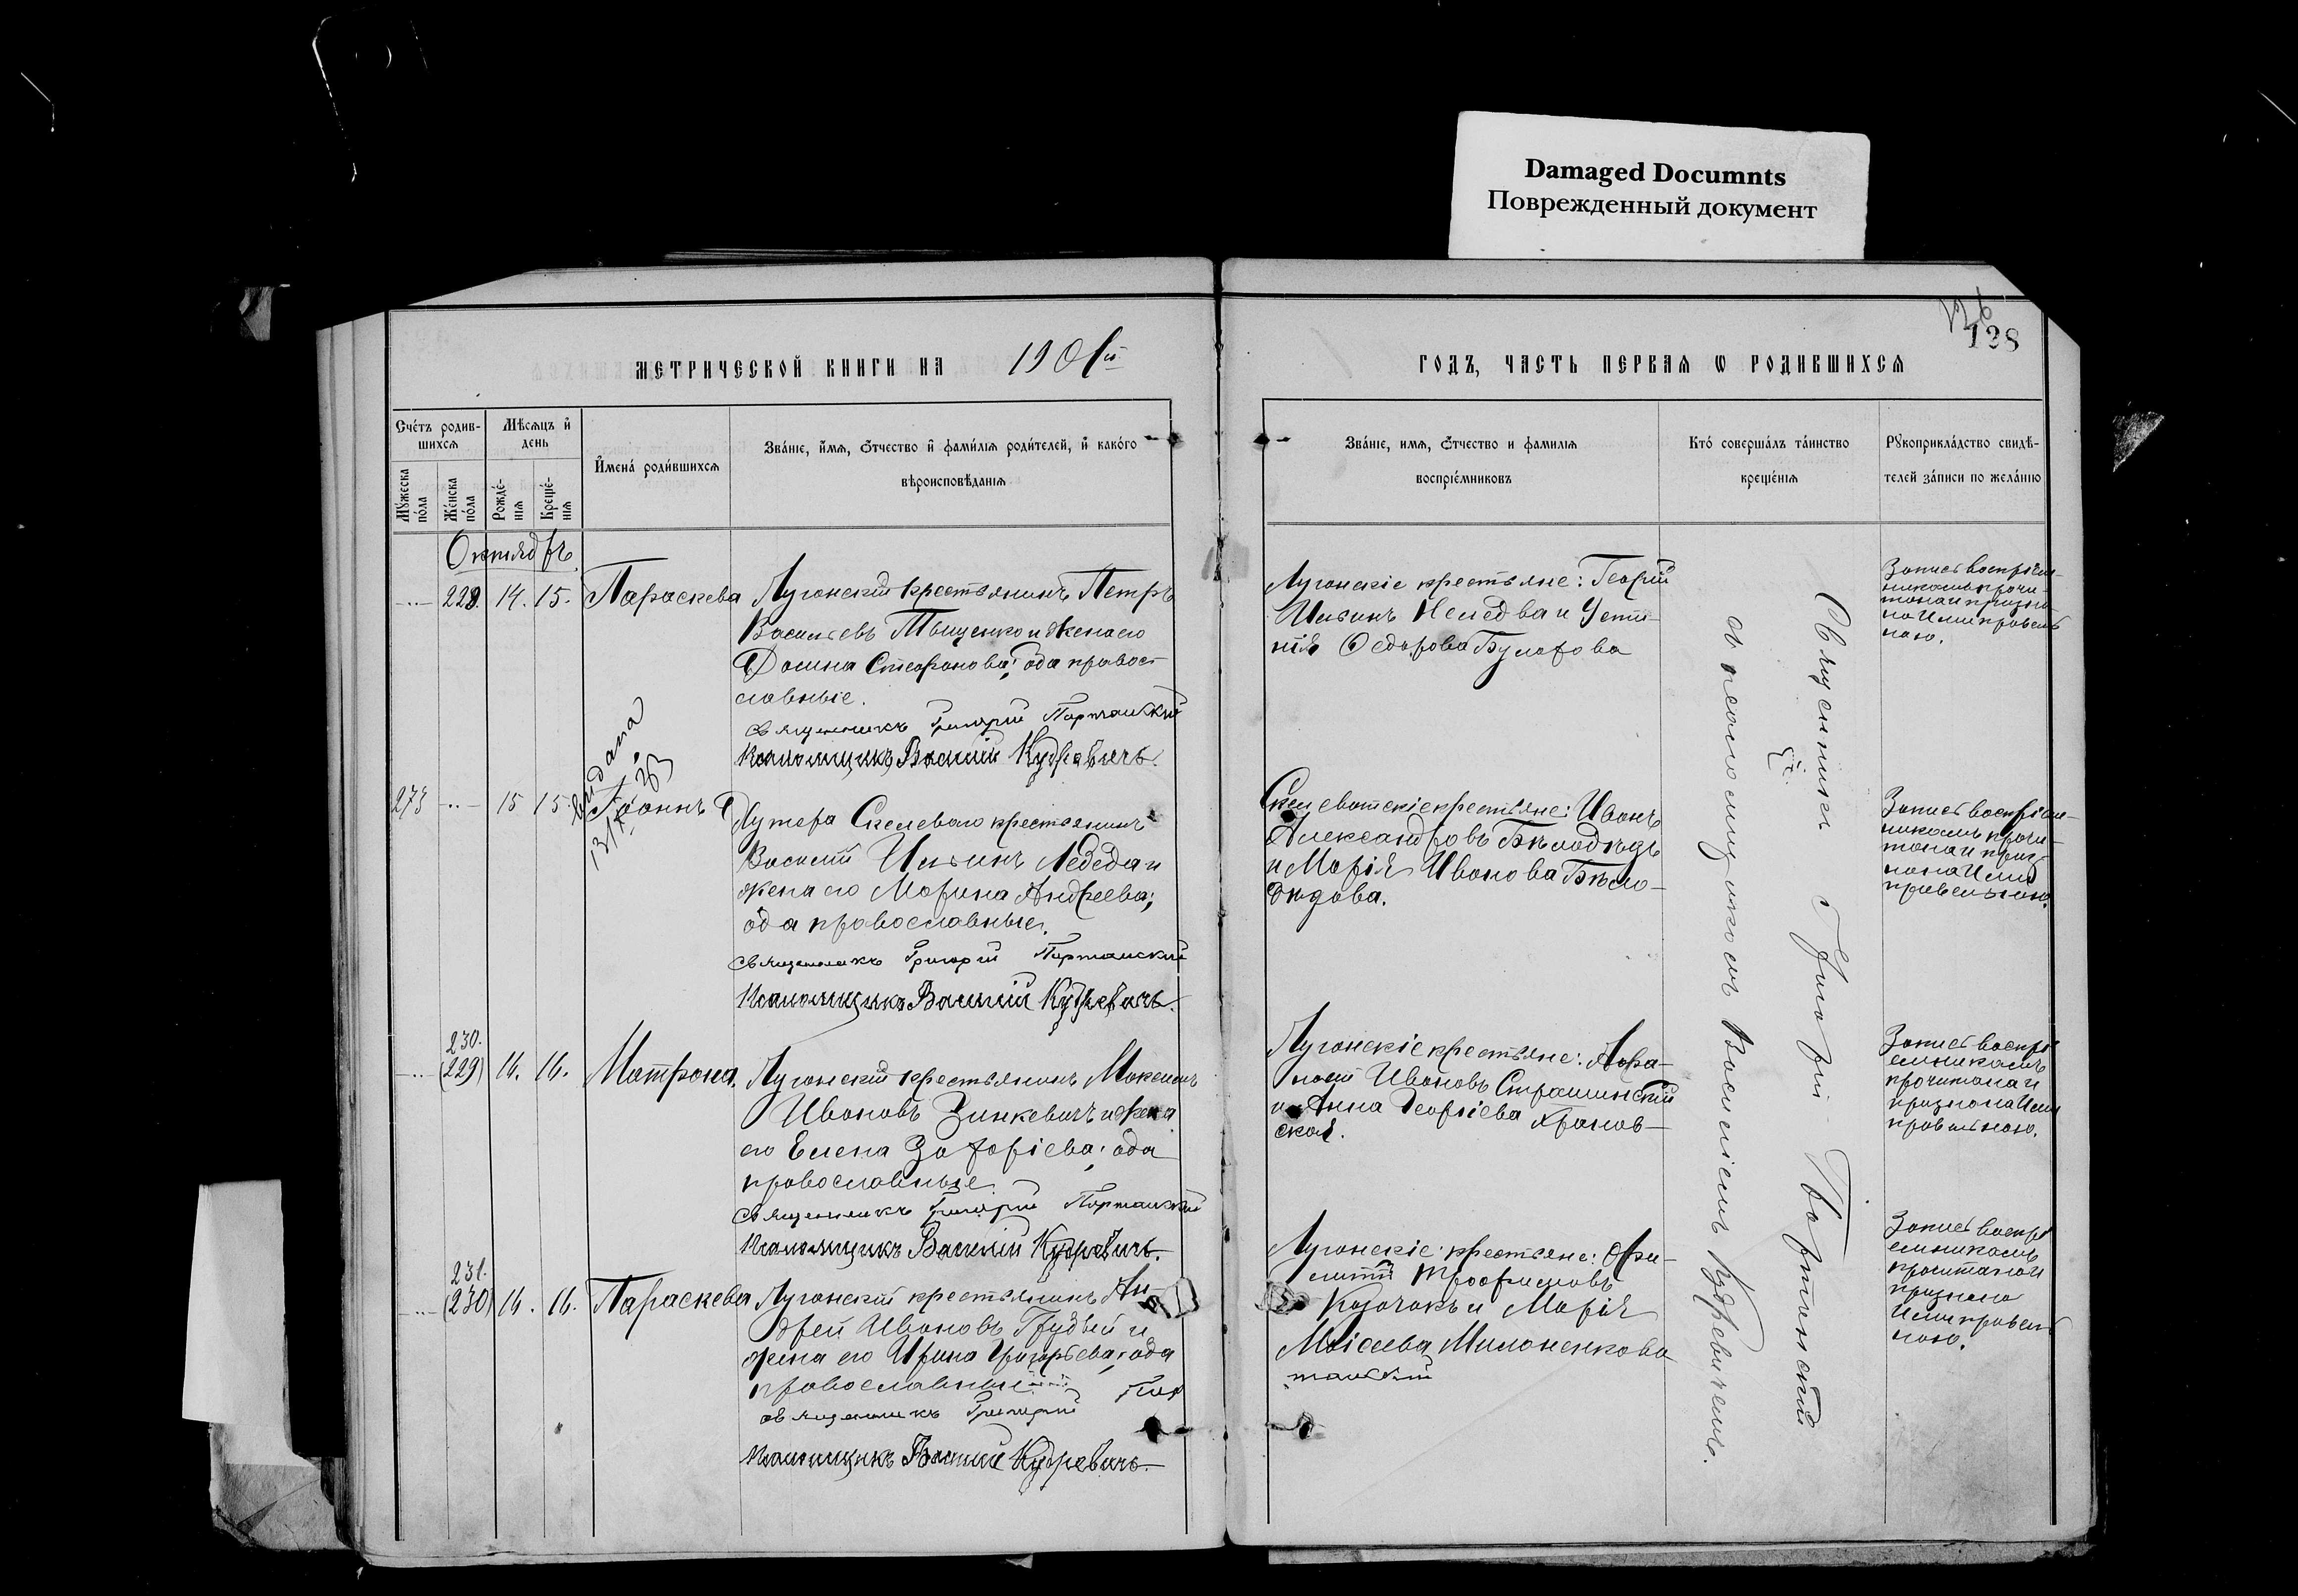 Damaged Documnts
Поврежденный документ
126
128
МЕТРИЧЕСКОЙ КНИГИ НА 1901й
ГОДЪ, ЧАСТЬ ПЕРВАѦ Ѡ РОДИВШИХСѦ
Сче́тъ родив-
шихсѧ
Мѣсѧцъ и҆
день
Мꙋжеска
по́ла
Же́нска
по́ла
Рожде́-
нїѧ
Креще́-
нїѧ
И҆мена̀ роди́вшихсѧ
Зва́нїе, и҆́мѧ, ѻ҆́тчество и҆ фами́лїѧ роди́телей, и҆ како́го
вѣроисповѣ́данїѧ
Зва́нїе, имѧ, ѻ҆́тчество и фамилїѧ
воспрїе́мниковъ
Кто́ соверша́лъ та́инство
креще́нїѧ
Рꙋкоприкла́дство свидѣ-
телей за́писи по жела́нїю
Октябрь
228. 14. 15. Параскева
Луганскій крестьянинъ Петръ
Васильевъ Тыщенко и жена его
Домна Стефанова; оба право-
славные.
Священникъ Григорій Партанскій
Псаломщикъ Василій Кудревичъ.
Луганскіе крестьяне: Георгій
Ильинъ и Усти-
нія Федорова Булахова
Запись воспріем-
никамъ прочи-
тана и призна-
на ими правиль-
ною.
273 15 15 Іоаннъ
выдана
Хутора Скелеваго крестьянинъ
Василій Ильинъ Лебеда и
жена его Марина Андреева;
оба православные.
Священникъ Григорій Партанскій
Псаломщикъ Василій Кудревичъ.
Скелеватскіе крестьяне: Иванъ
Александровъ Бѣлодѣдъ
и Марія Иванова Бѣло-
дѣдова.
Запись воспріем-
никамъ прочи-
тана и приз-
нана ими
правильною.
230.
(229) 16. 16. Матрона.
Луганскій крестьянинъ Максимъ
Ивановъ Зинкевичъ и жена
его Елена Захаріева; оба
православные
Священникъ Григорій Партанскій
Псаломщикъ Василій Кудревичъ.
Луганскіе крестьяне: Афа-
насій Ивановъ Страшинскій
и Анна Георгіева Хранов-
ская.
Запись воспрі
емникамъ
прочитана и
признана ими
правильною.
231.
(230) 16. 16. Параскева
Луганскій крестьянинъ Ан-
дрей Ивановъ Грудый и
жена его Ирина Григорьева; оба
православные
Священникъ Григорій Пар
танскій
Псаломщикъ Василій Кудревичъ.
Луганскіе крестьяне: Фи-
липпъ Трофимовъ
Козачокъ и Марія
Моісеева Милоненкова
Запись воспрі
емникамъ
прочитана и
признана
ими правиль
ною.
Священникъ Григорій Партанскій
съ псаломщикомъ Василіемъ Кудревичемъ.